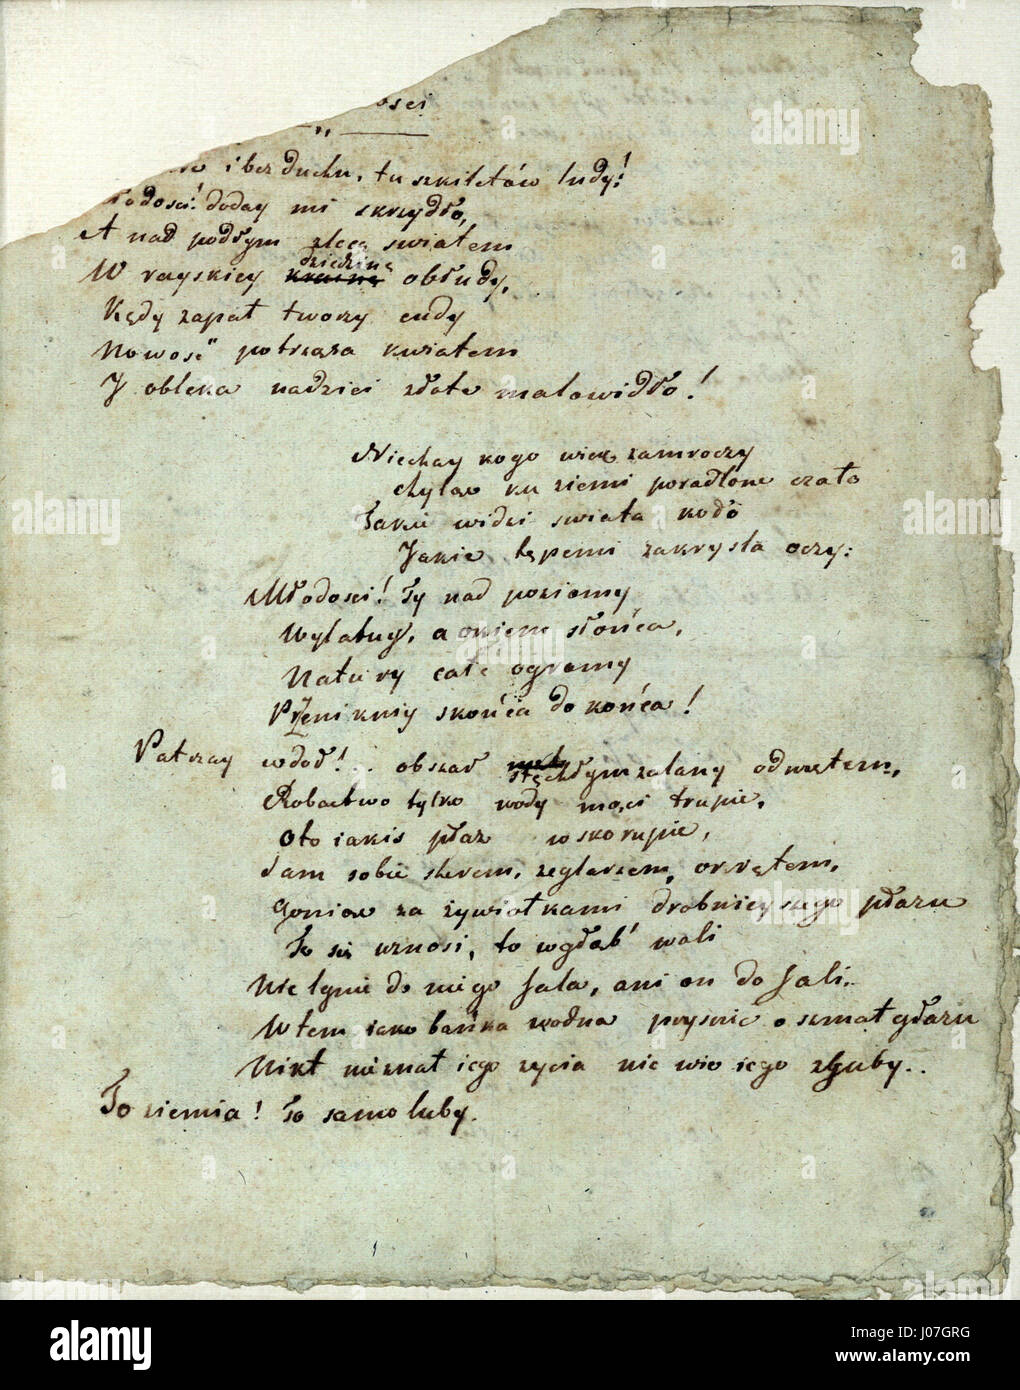 ości
i bez duchu, tu szkiletów ludy!
łodości! doday mi skrzydło,
A nad podłym zlecę swiatem
W rayskiey krainę dziedzinę obłudy,
Kędy zapał tworzy cudy
Nowość potrząsa kwiatem
I obleka nadziei złote malowidło!
Niechay kogo wiek zamroczy
Chyląc ku ziemi poradlone czoło
Takie widzi swiata koło
Jakie tępemi zakrysla oczy:
Młodosci! Ty nad poziomy
Wylatuy, a okiem słońca,
Natury całe ogromy
Przenikniy skońca do końca!
Patrzay wdoł!.. obszar stęchłym zalany odmętem,
Robactwo tylko wody mąci trupie,
Oto iakis płaz w skorupie,
Sam sobie sterem, zeglarzem, okrętem,
Goniąc za żywiołkami drobnieyszego płazu
To się wznosi, to wgłąb' wali
Nie lgnie do niego fala, ani on do fali..
Wtem iako bańka wodna prysnie o szmat głazu
Nikt nieznał iego zycia nie wie iego zguby..
To ziemia! To samoluby.
alamy
J07GRG
www.alamy.com